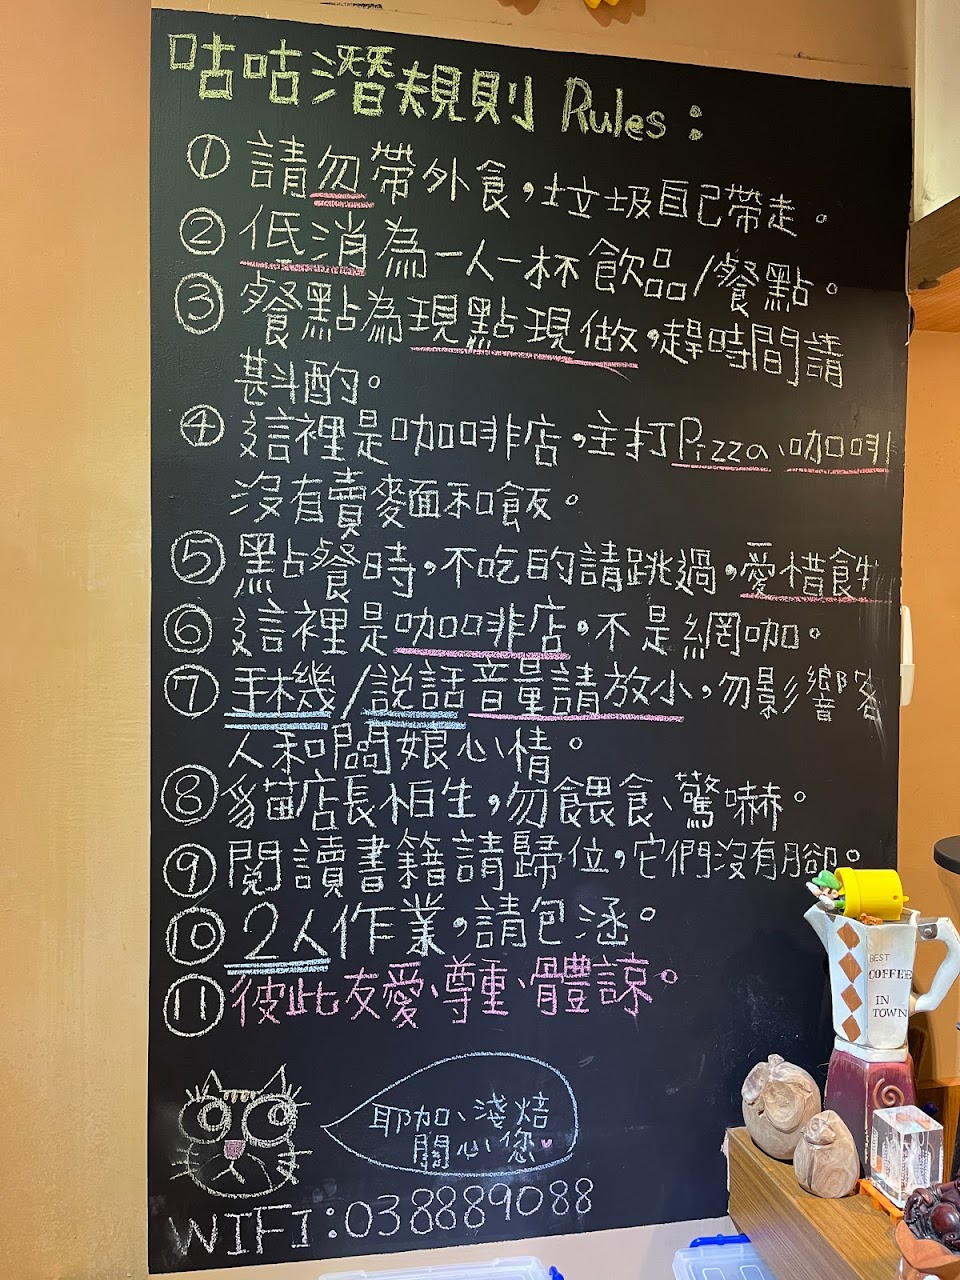 咕咕潛規則 Rules：
① 請勿帶外食，垃圾自己帶走。
② 低消為一人一杯飲品/餐點。
③ 餐點為現點現做，趕時間請
斟酌。
④ 這裡是咖啡店，主打Pizza、咖啡
沒有賣麥麵和飯。
⑤ 點餐時，不吃的請跳過，愛惜食物
⑥ 這裡是咖啡店，不是網咖。
⑦ 手機/說話音量請放小，勿影響客
人和闆娘心情。
⑧ 貓店長怕生，勿餵食、驚嚇。
⑨ 閱讀書籍請歸位，它們沒有腳。
⑩ 2人作業，請包涵。
⑪ 彼此友愛、尊重、體諒。
耶加、淺焙
關心您
WIFI：038889088
BEST
COFFEE
IN
TOWN